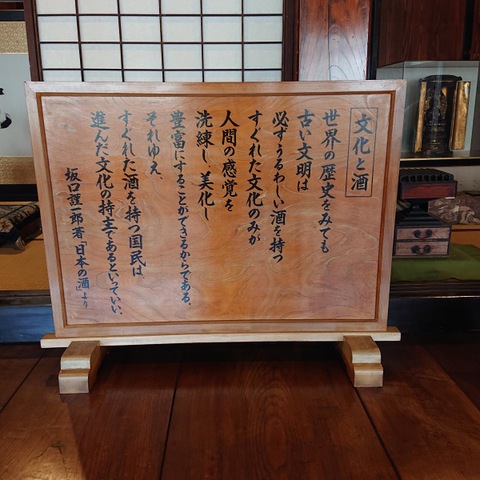 文化と酒
世界の歴史をみても
古い文明は
必ずうるわしい酒を持つ
すぐれた文化のみが
人間の感覚を
洗練し、美化し
豊富にすることができるからである、
それゆえ、
すぐれた酒を持つ国民は
進んだ文化の持主であるといっていい、
坂口謹一郎著「日本の酒」より